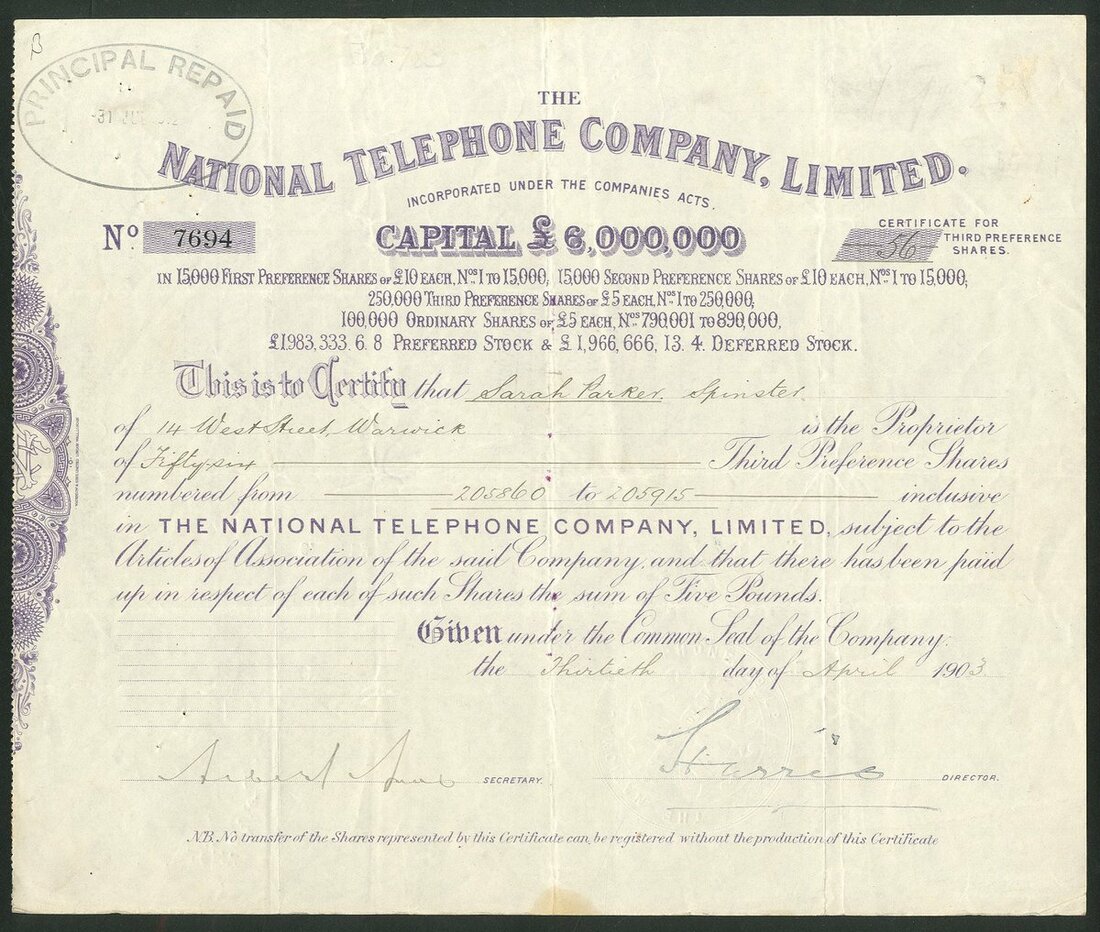 B
PRINCIPAL REPAID
THE
NATIONAL TELEPHONE COMPANY, LIMITED.
INCORPORATED UNDER THE COMPANIES ACTS.
No. 7694
CAPITAL £ 6,000,000
56
CERTIFICATE FOR
THIRD PREFERENCE
SHARES.
IN 15,000 FIRST PREFERENCE SHARES OF £10 EACH, Nos. 1 TO 15,000, 15,000 SECOND PREFERENCE SHARES OF £10 EACH, Nos. 1 TO 15,000,
250,000 THIRD PREFERENCE SHARES OF £5 EACH, Nos. 1 TO 250,000,
100,000 ORDINARY SHARES OF £5 EACH, Nos. 790,001 TO 890,000,
£1,983,333. 6. 8 PREFERRED STOCK & £1,966,666, 13. 4. DEFERRED STOCK.
This is to Certify that Sarah Parker, Spinster
of 14 West Street, Warwick is the Proprietor
of Fifty six Third Preference Shares
numbered from 205860 to 205915 inclusive
in THE NATIONAL TELEPHONE COMPANY, LIMITED, subject to the
Articles of Association of the said Company, and that there has been paid
up in respect of each of such Shares the sum of Five Pounds.
Given under the Common Seal of the Company.
the Thirtieth day of April 1903
SECRETARY.
Harris
DIRECTOR.
N.B. No transfer of the Shares represented by this Certificate can be registered without the production of this Certificate